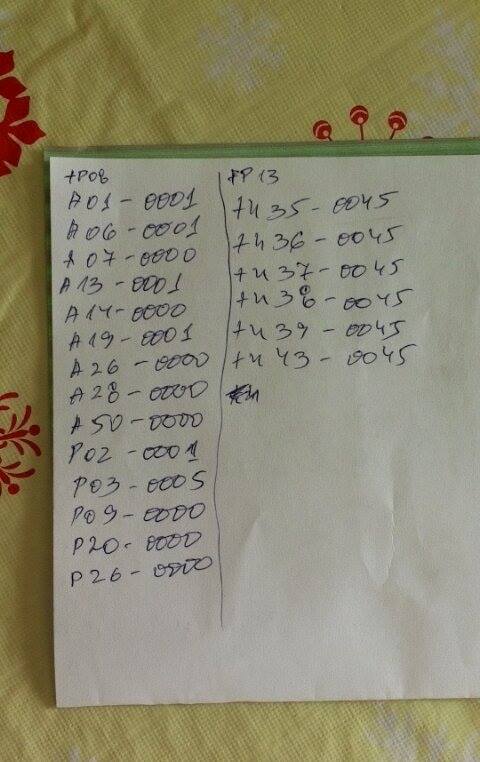 FP08
A01-0001
A06-0001
A07-0000
A13-0001
A14-0000
A19-0001
A26-0000
A28-0000
A50-0000
P02-0001
P03-0005
P09-0000
P20-0000
P26-0000
FP13
Fn35-0045
Fn36-0045
Fn37-0045
Fn38-0045
Fn39-0045
Fn43-0045